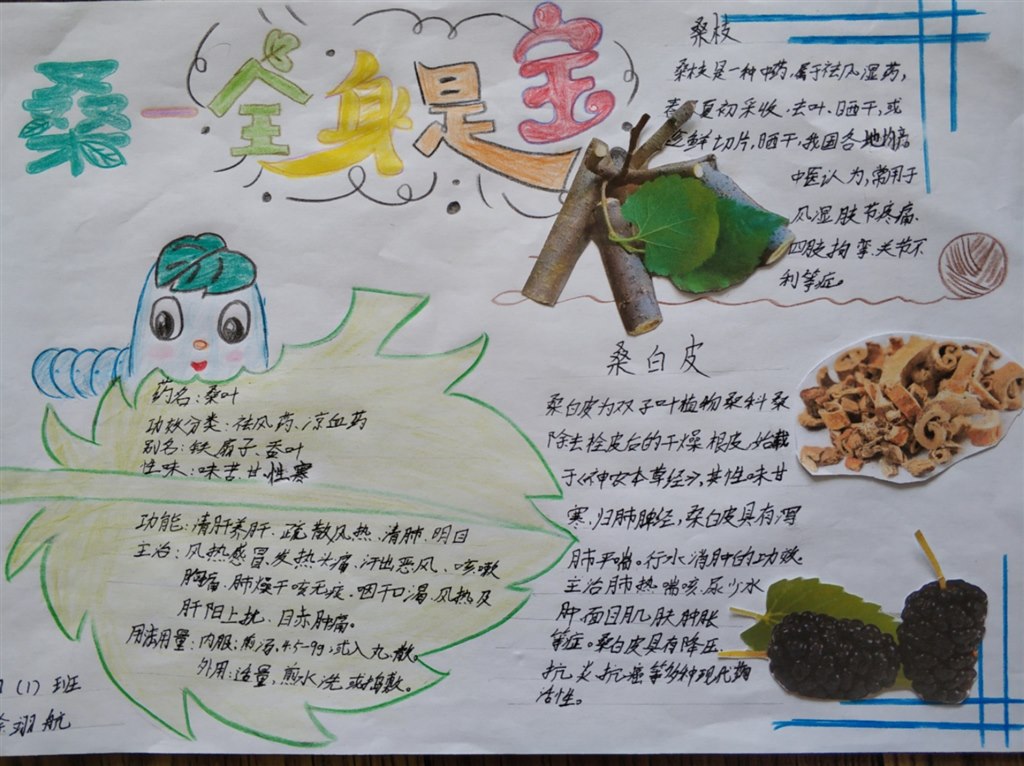 桑一全身是宝
桑枝
桑枝是一种中药,属于祛风湿药,
春夏初采收,去叶、晒干,或
趁鲜切片,晒干,我国各地均产
中医认为,常用于
风湿肢节疼痛、
四肢拘挛、关节不
利等症。
药名:桑叶
功效分类:祛风药、凉血药
别名:铁扇子、蚕叶
性味:味苦、甘,性寒
功能:清肝养肝、疏散风热、清肺、明目
主治:风热感冒、发热头痛、汗出恶风、咳嗽
胸痛、肺燥干咳无痰、咽干口渴、风热及
肝阳上扰、目赤肿痛。
用法用量:内服:煎汤,4.5-9g,或入丸、散。
外用:适量,煎水洗或捣敷。
桑白皮
桑白皮为双子叶植物桑科桑
除去栓皮后的干燥根皮,始载
于《神农本草经》,其性味甘
寒,归肺脾经,桑白皮具有泻
肺平喘、行水消肿的功效。
主治肺热喘咳、尿少水
肿、面目肌肤肿胀
等症。桑白皮具有降压、
抗炎、抗癌等多种现代药理
活性。
(1)班
翊航